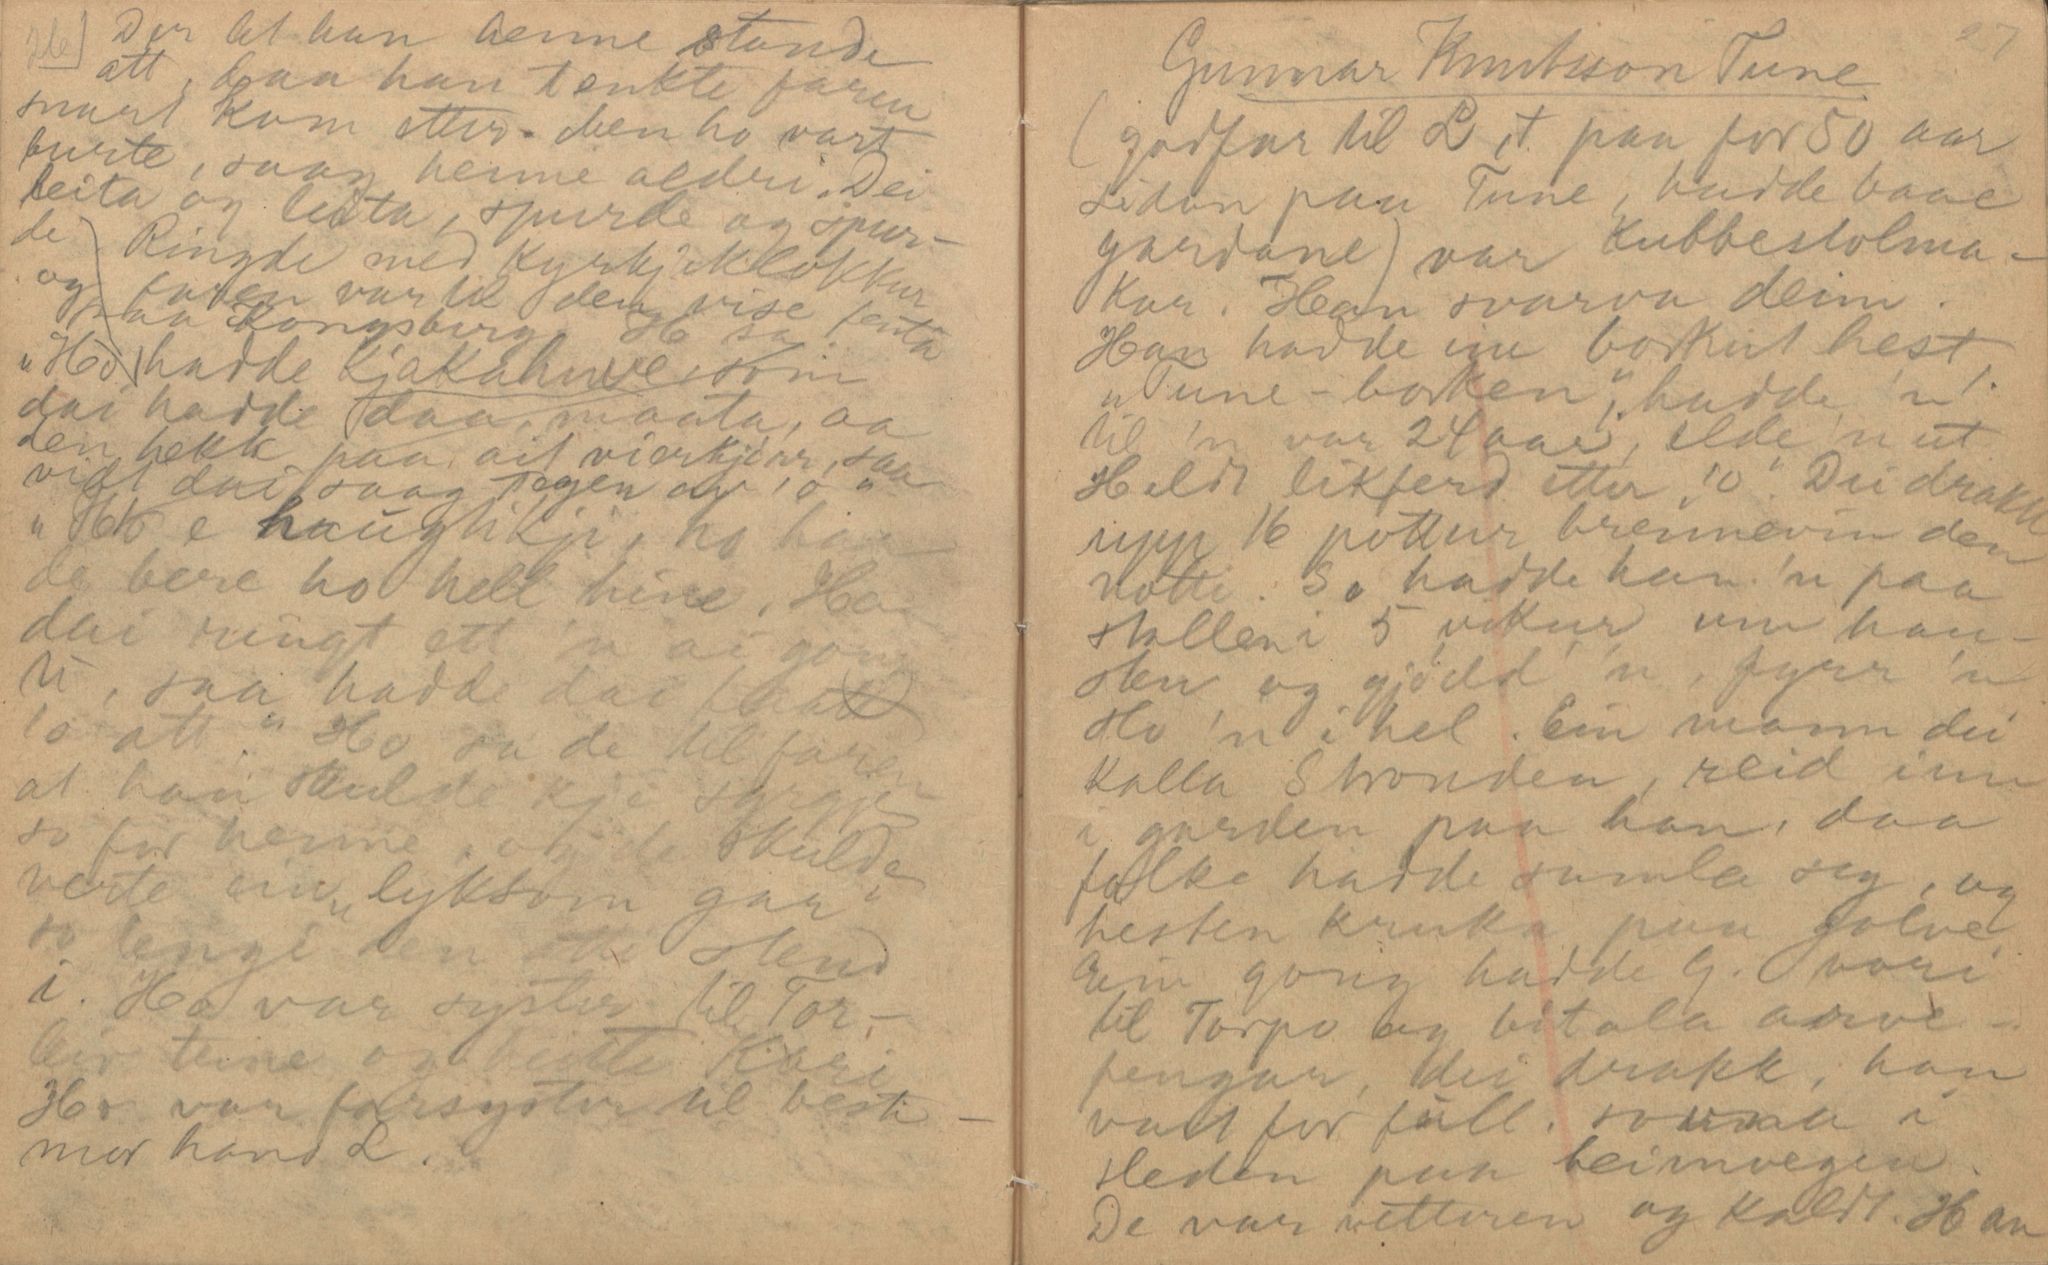 26]
Der let han henne stande
att, daa han tenkte faren
snart kom etter. Men ho vart
burte, saag henne aldri. Dei
leita og leita, spurde og spur-
de Ringde med kyrkjeklokkur
og faren var til den vise jenta
paa Kongsberg. H sa
"Ho hadde kjakahuve, som
dai hadde daa, maata, aa
den hekk paa ait vierkjær, saa
vidt dai saag
"Ho e haugtikji, ho ha
de bere ho hell hine. Ha
dai ringt ett 'n ai gong
ti, saa hadde dai faatt
'o att." Ho sa de til faren
at han skulde kji syrgje
so for henne, og de skulde
verte ein "lyksom gar"
so lengi den stend
i. Ho var syster til Tor-
leiv teine og heitte Kari
Ho var farsyster til beste-
mor hans L.
27
Gunnar Knutsson Tune
(godfar til L, t. paa for 50 aar
sidan paa Tune, hadde baae
gardane) var kubbestolma-
kar. Han svarva deim.
Han hadde ein borkut hest,
"Tune-borken", hadde 'n
til 'n var 24 aar, elde 'n ut
Heldt likferd etter 'o. Dei drakk
upp 16 pottur brennevin den
notti. So hadde han 'n paa
stallen i 5 vikur um hau-
sten og gjødd 'n, fyrr 'n
slo 'n i hel. Ein mann dei
kalla Stronden, reid inn
i garden paa han, daa
folke hadde samla seg, og
hesten kruka paa golve.
Ein gong hadde G. vori
til Torpo og betala arve-
pengar, dei drakk, han
vart for full. sovna i
sleden paa heimvegen.
De var vetteren og kaldt. Han